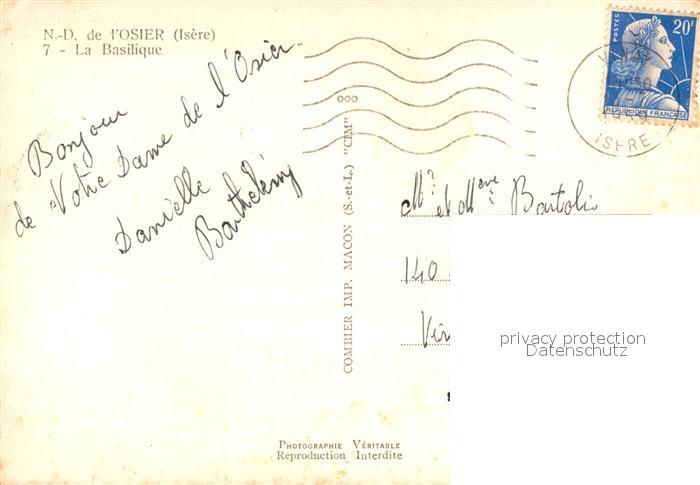 N.-D. de l'OSIER (Isère)
7 - La Basilique
Bonjour
de Notre Dame de l'Osier.
Danielle
Barthélémy
COMBIER IMP. MACON (S.-et-L.) "CIM"
POSTES
20F
REPUBLIQUE FRANÇAISE
ISERE
Mr et Mme Bartolis
140
privacy protection
Datenschutz
PHOTOGRAPHIE VÉRITABLE
Reproduction Interdite